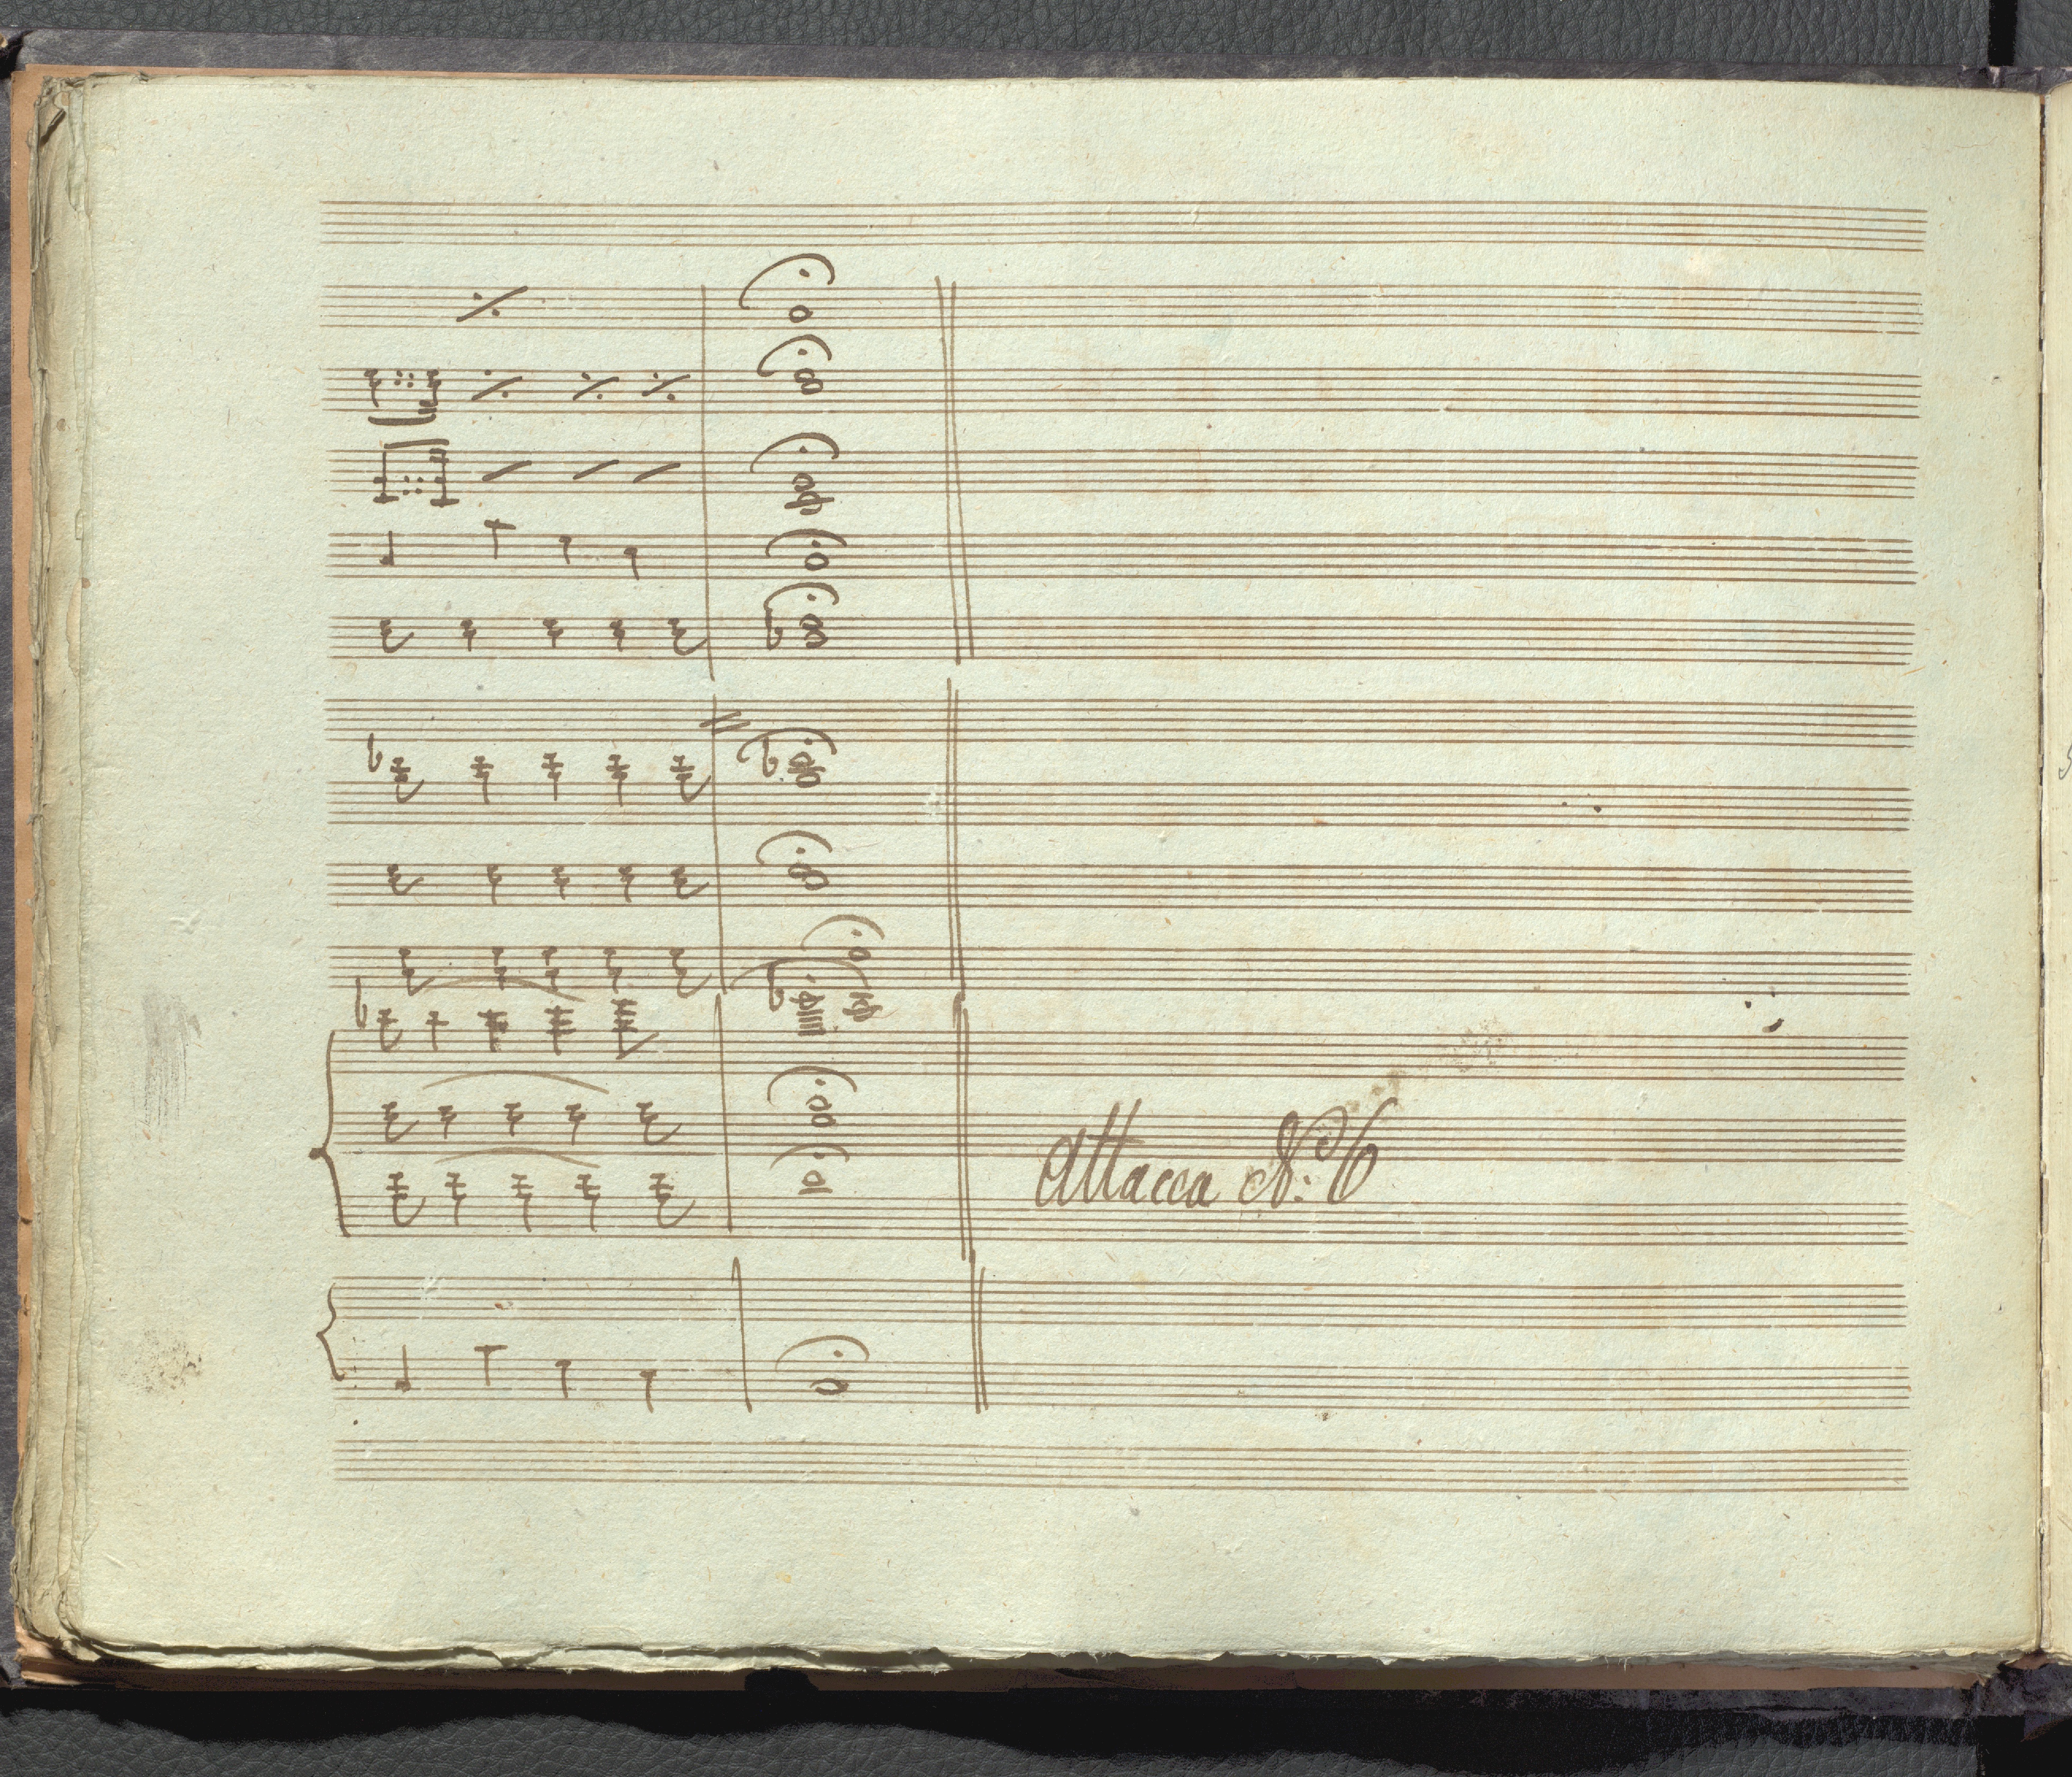 Attacca No: 6